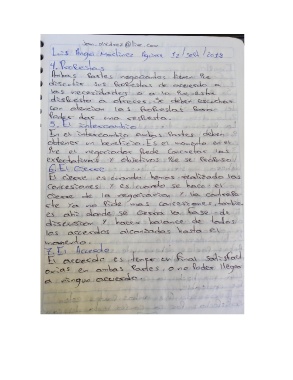 Luis Angel Martinez Aguirre 12/Sept/2018
4. Propuestas
Ambas Partes negociantes tienen que
discutir sus Propuestas de acuerdo a
las necesidades o lo que esta
dispuesto a ofrecer. Se deben escuchar
con atencion las Propuestas Para
Poder dar una respuesta.
5. El Intercambio
En el intercambio ambas Partes deben
obtener un beneficio. Es el momento en el
que el negociador Puede concretar las
expectativas y objetivos que se Propuso.
6. El Cierre
El cierre es cuando hemos realizado las
concesiones y es cuando se hace el
cierre de la negociacion y la contraparte
ya no Pide mas concesiones, tambien
es ahi donde se cierra la base de
discusion y hacer balance de todos
los acuerdos alcanzados hasta el
momento.
7. El Acuerdo
El acuerdo es llegar un final satisfact
orias en ambas Partes o no Poder llegar
a ningun acuerdo.